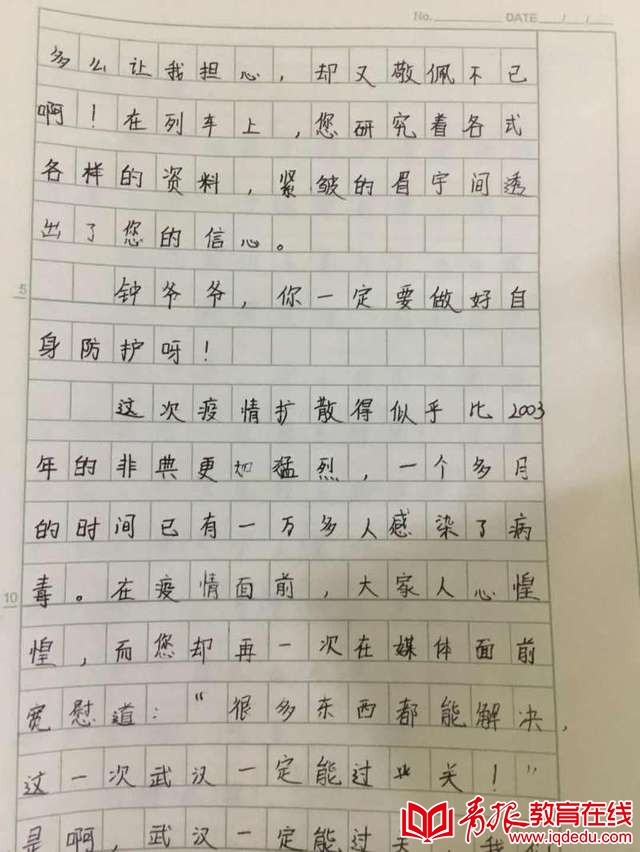 No. DATE / /
多么让我担心，却又敬佩不已
啊！在列车上，您研究着各式
各样的资料，紧皱的眉宇间透
出了您的信心。
5
钟爷爷，你一定要做好自
身防护呀！
这次疫情扩散得似乎比2003
年的非典更加猛烈，一个多月
的时间已有一万多人感染了病
10
毒。在疫情面前，大家人心惶
惶，而您却再一次在媒体面前
宽慰道：“很多东西都能解决，
这一次武汉一定能过关！”
是啊，武汉一定能过关，我
青报教育在线
www.iqdedu.com